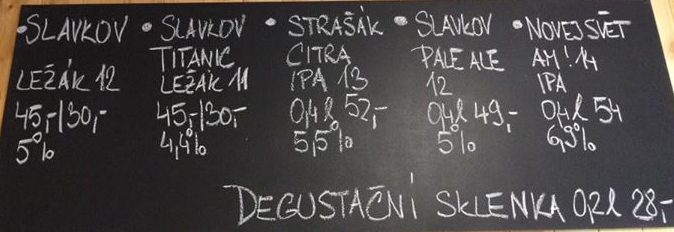 SLAVKOV
LEŽÁK 12
45,-/30,-
5%
SLAVKOV
TITANIC
LEŽÁK 11
45,-/30,-
4,4%
STRAŠÁK
CITRA
IPA 13
0,4l 52,-
5,5%
SLAVKOV
PALE ALE
12
0,4l 49,-
5%
NOVEJ SVĚT
AM! 14
IPA
0,4l 54
6,9%
DEGUSTAČNÍ SKLENKA 0,2l 28,-